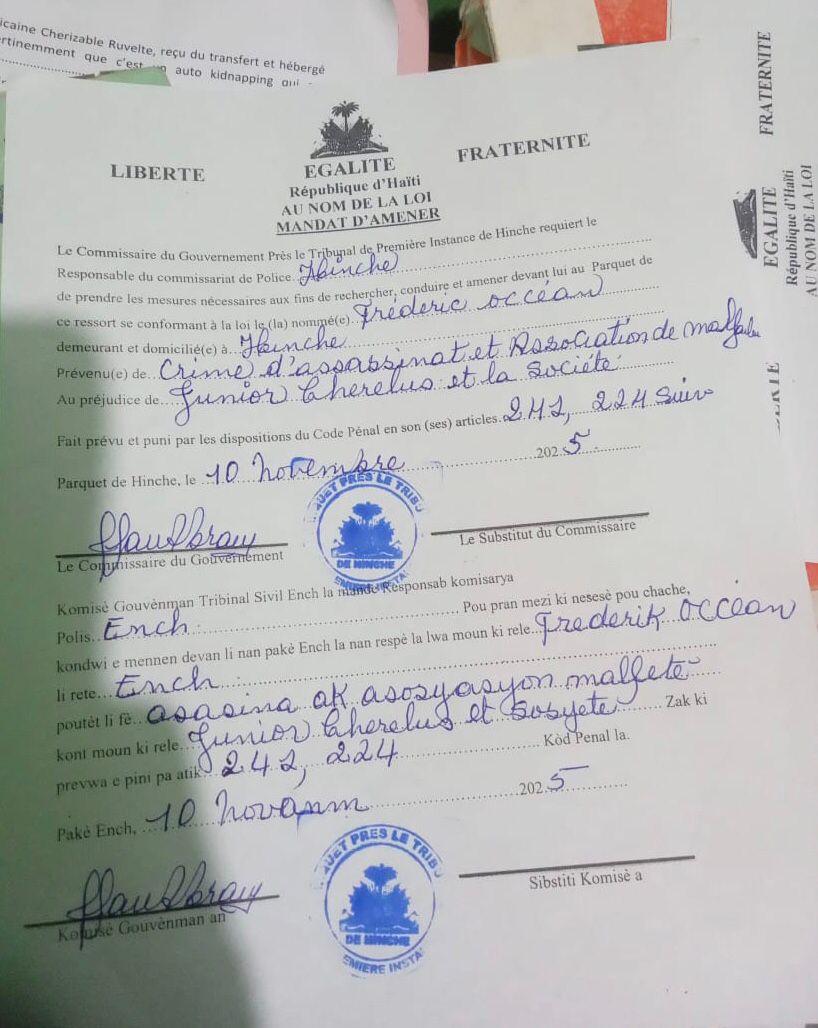 icaine Cherizable Ruvelte, reçu du transfert et hébergé
rtinemment que c'est un auto kidnapping qui
LIBERTE EGALITE FRATERNITE
République d'Haïti
AU NOM DE LA LOI
MANDAT D'AMENER
Le Commissaire du Gouvernement Près le Tribunal de Première Instance de Hinche requiert le
Responsable du commissariat de Police Hinche
de prendre les mesures nécessaires aux fins de rechercher, conduire et amener devant lui au Parquet de
ce ressort se conformant à la loi le (la) nommé(e) Fréderic occéan
demeurant et domicilié(e) à Hinche
Prévenu(e) de Crime d'assassinat et Association de malfa
Au préjudice de Junior Cherelus et la Société
Fait prévu et puni par les dispositions du Code Pénal en son (ses) articles 241, 224 suiv
Parquet de Hinche, le 10 Novembre 2025
Le Commissaire du Gouvernement
Le Substitut du Commissaire
QUET PRÈS LE TRIBU
DE HINCHE
EMIERE INSTA
Komisè Gouvènman Tribinal Sivil Ench la mande Responsab komisarya
Polis Ench Pou pran mezi ki nesesè pou chache,
kondwi e mennen devan li nan pakè Ench la nan respè la lwa moun ki rele Frederik occéan
li rete Ench
poutèt li fè asasina ak asosyasyon malfetè
kont moun ki rele Junior Cherelus et sosyete Zak ki
prevwa e pini pa atik 241, 224 Kòd Penal la.
Pakè Ench, 10 Novanm 2025
Komisè Gouvènman an
Sibstiti Komisè a
QUET PRES LE TRIBU
DE HINCHE
EMIERE INSTA
FRATERNITE
EGALITE
République d'Haïti
AU NOM DE LA LOI